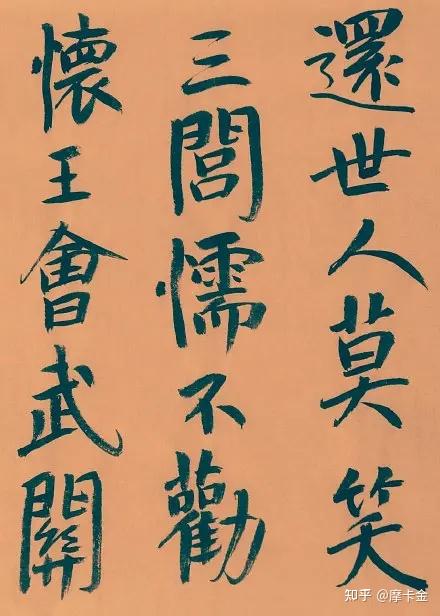 還世人莫笑
三閭懦不勸
懷王會武關
知乎 @摩卡金